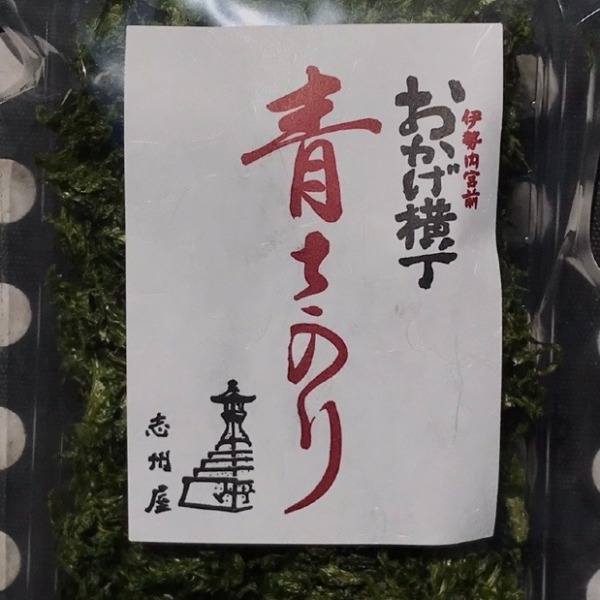 伊勢内宮前
おかげ横丁
青さのり
志州屋